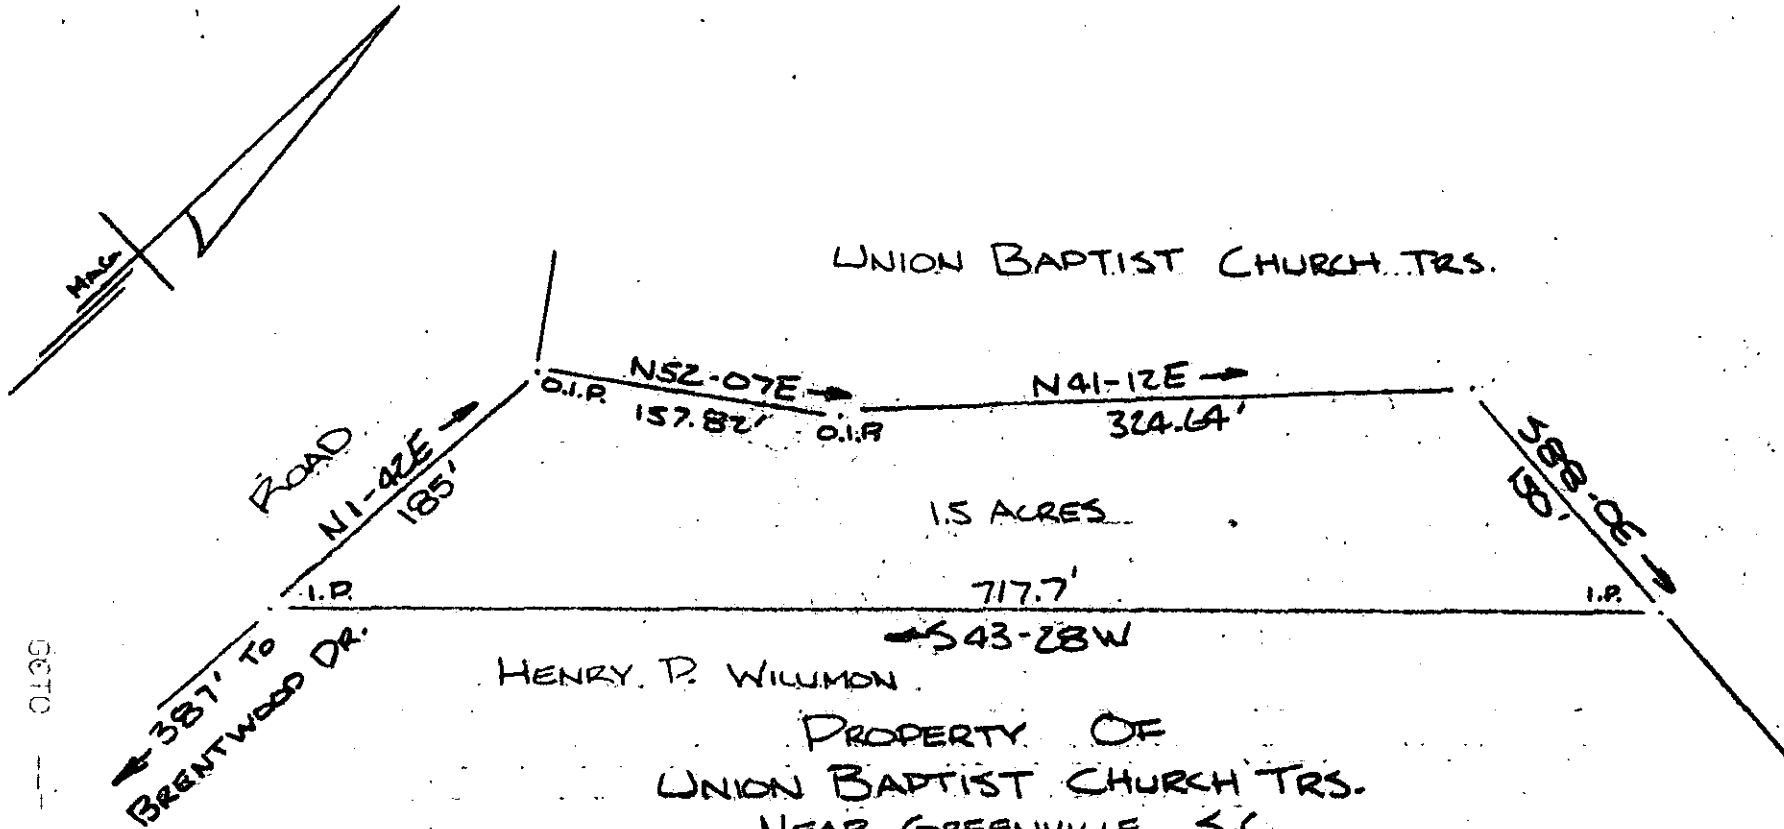 MAG
UNION BAPTIST CHURCH TRS.
N52-07E
O.I.P.
157.82'
O.I.P.
N41-12E
324.64'
ROAD
N1-42E
185'
S88-0E
150'
1.5 ACRES
I.P.
717.7'
I.P.
S43-28W
387' TO
BRENTWOOD DR.
HENRY P. WILLIMON
PROPERTY OF
UNION BAPTIST CHURCH TRS.
NEAR GREENVILLE, S.C.